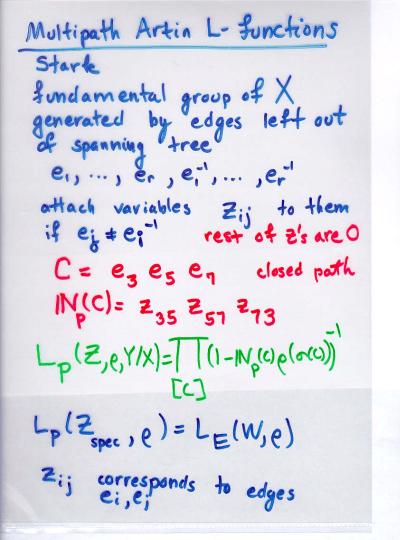 Multipath Artin L-functions
Stark
fundamental group of X
generated by edges left out
of spanning tree
e₁, ..., eᵣ, e₁⁻¹, ..., eᵣ⁻¹
attach variables zᵢⱼ to them
if eⱼ ≠ eᵢ⁻¹ rest of z's are 0
C = e₃ e₅ e₇ closed path
INₚ(C) = z₃₅ z₅₇ z₇₃
Lₚ(Z, ρ, Y/X) = ∏ (1 - INₚ(C) ρ(σ(C)))⁻¹
[C]
Lₚ(Z_spec, ρ) = L_E(W, ρ)
zᵢⱼ corresponds to edges
eᵢ, eⱼ